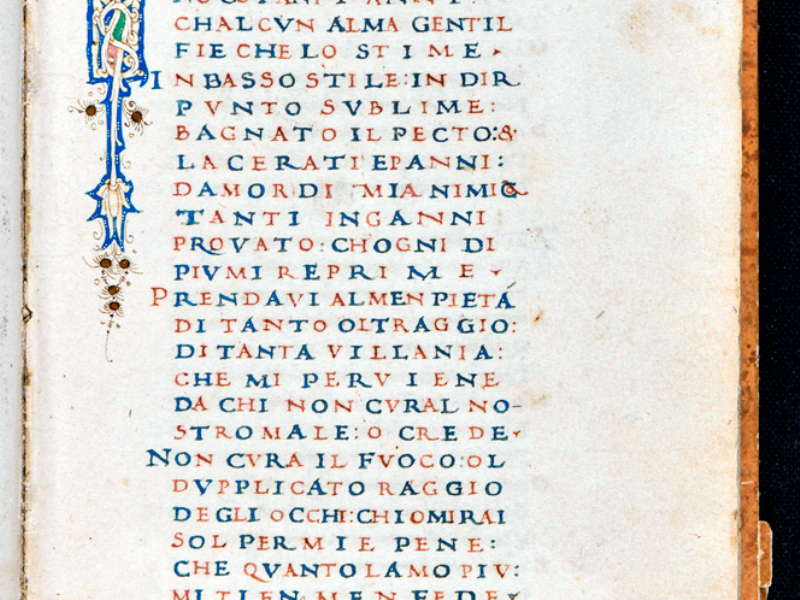 CHALCVN ALMA GENTIL
FIE CHE LO STIME·
IN BASSO STILE: IN DIR
PVNTO SVBLIME:
BAGNATO IL PECTO: &
LACERATI E PANNI:
DAMOR DI MIA NIMIC
TANTI INGANNI
PROVATO: CHOGNI DI
PIV MI REPRIME·
PRENDAVI ALMEN PIETA
DI TANTO OLTRAGGIO:
DI TANTA VILLANIA:
CHE MI PERVIENE
DA CHI NON CVRAL NO-
STRO MALE: O CREDE·
NON CVRA IL FVOCO: OL
DVPPLICATO RAGGIO
DEGLI OCCHI: CHIO MIRAI
SOL PER MIE PENE:
CHE QVANTO LAMO PIV:
MI TIEN MEN FEDE